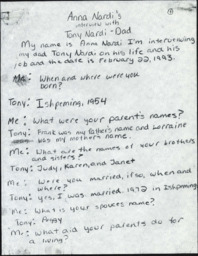 Anna Nardi's
interview with
Tony Nardi - Dad
My name is Anna Nardi I'm interviewing
my dad Tony Nardi on his life and his
job and this date is February 22, 1993.
Me: When and where were you
born?
Tony: Ishpeming, 1954
Me: What were your parent's names?
Tony: Frank was my father's name and Lorraine
was my mothers name.
Me: What are the names of your brothers
and sisters?
Tony: Judy, Karen, and Janet
Me: Were you married, if so, when and
where?
Tony: yes, I was married. 1972 in Ishpeming
Me: What is your spouses name?
Tony: Peggy
Me: What did your parents do for
a living?